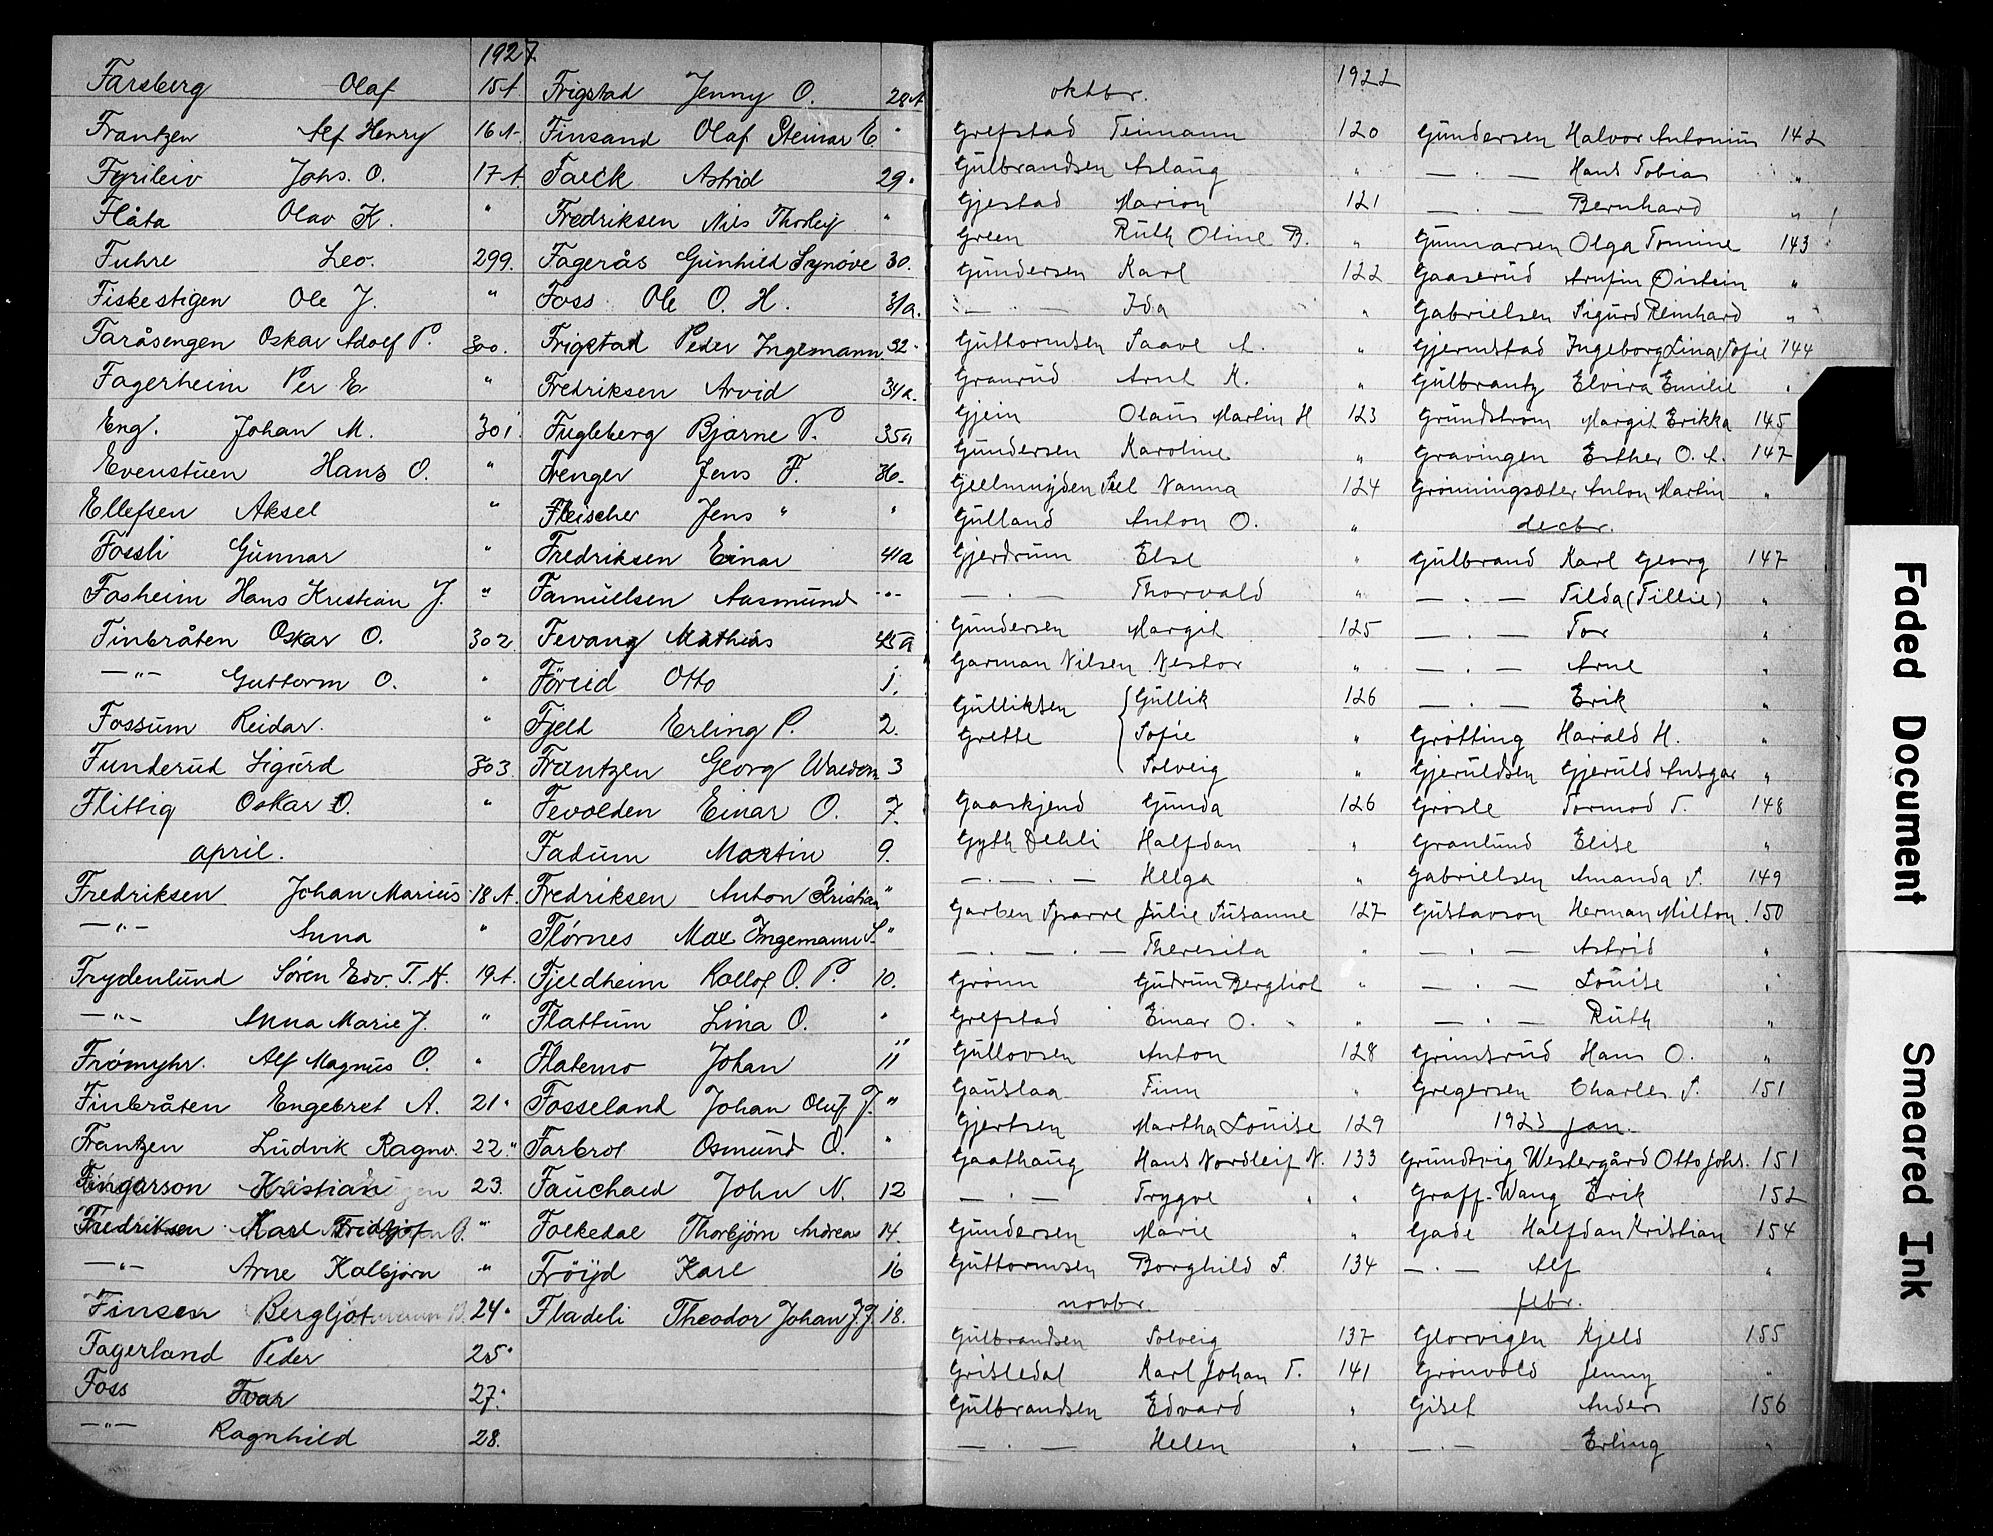 1927
Farsberg Olaf 15A.
Frantzen Alf Henry 16A.
Fyrileiv Johs. O. 17A.
Flåta Olav K. "
Fuhre Leo. 299.
Fiskestigen Ole J. "
Faråsengen Oskar Adolf P. 300.
Fagerheim Per E. "
Eng. Johan M. 301.
Evenstuen Hans O. "
Ellefsen Aksel "
Fossli Gunnar "
Fosheim Hans Kristian J. "
Finbråten Oskar O. 302.
—"— Guttorm O. "
Fossum Reidar. "
Funderud Sigurd 303.
Flittig Oskar O. "
april.
Fredriksen Johan Marius 18A.
—"— Anna "
Frydenlund Sören Edv. T. H. 19A.
—"— Anna Marie J. "
Frömyhr. Alf Magnus O. "
Finbråten Engebret A. 21"
Frantzen Ludvik Ragnv. 22"
Kristian 23.
Fredriksen Karl Fridtjof "
—"— Arne Kolbjørn "
Finsen Bergljot 24"
Fagerland Peder 25"
Foss Ivar 27.
—"— Ragnhild 28.
Frigstad Jenny O. 28A
Finsand Olaf Steinar E. "
Falck Astrid 29"
Fredriksen Nils Thorleif "
Fagerås Gunhild Synöve 30.
Foss Ole O. H. 31a.
Frigstad Peder Ingemann 32"
Fredriksen Arvid 34a.
Fugleberg Bjarne P. 35a
Frenger Jens F. 36-
Fleischer Jens " "
Fredriksen Einar 41a
Famuelsen Aasmund -"-
Fevang Mathias 45a
Föreid Otto 1.
Fjeld Erling P. 2.
Frantzen Georg Waldem 3
Fevolden Einar O. 7.
Fadum Martin 9.
Fredriksen Anton Kristian "
Flörnes Max Ingemann S. "
Fjeldheim Rollof O. P. 10.
Flattum Lina O. "
Flatemo Johan 11
Fosseland Johan Oluf J. "
Farbrot Osmund O. "
Fauchald John N. 12
Folkedal Thorbjörn Andreas 14.
Fröyd Karl 16
Fladeli Theodor Johan J. J. 18.
oktbr. 1922
Grefstad Teimann 120
Gulbrandsen Aslaug "
Gjestad Marion 121
Green Ruth Oline B. "
Gundersen Karl 122
— . — Ida "
Guttormsen Saave A. "
Granrud Arnt K. "
Gjein Olaus Martin H 123
Gundersen Karoline "
Geelmuyden Siel Nanna 124
Gulland Anton O. "
Gjerdrum Else "
— . — Thorvald "
Gundersen Margit 125
Garman Nilsen Nestor "
Gulliksen Gullik 126
Grette Sofie "
Solveig "
Gaaskjend Gunda 126
Gyth Dehli Halfdan "
— . — . — Helga "
Garben Sparre Julie Susanne 127
— . — . — Theresita "
Grönn Gudrun Bergliot "
Grefstad Einar O. "
Gullovsen Anton 128
Gauslaa Finn "
Gjertsen Martha Louise 129
Gaathaug Hans Nordleif N. 133
— . — Trygve "
Gundersen Marie "
Guttormsen Borghild S. 134
novbr.
Gulbrandsen Solveig 137
Grisledal Karl Johan T. 141
Gulbrandsen Edvard "
— . — Helen "
Gundersen Halvor Antonius 142
— . — Hans Tobias "
— . — Bernhard "
Gunnarsen Olga Tomine 143
Gaaserud Arnfin Øistein "
Gabrielsen Sigurd Reinhard "
Gjermstad Ingeborg Lina Sofie 144
Gulbrantz Elvira Emilie "
Grundstrøm Margit Erikka 145
Gravingen Esther O. A. 147
Grønningsæter Anton Martin "
decbr.
Gulbrand Karl Georg 147
— . — Tilda (Tillie) "
— . — Tor "
— . — Arne "
— . — Erik "
Grøtting Harald H. "
Gjeruldsen Gjeruld Ansgar "
Grøsle Tormod T. 148
Granlund Elise "
Gabrielsen Amanda S. 149
Gustavson Herman Milton 150
— . — Astrid "
— . — Louise "
— . — Ruth "
Grimsrud Hans O. "
Gregersen Charles S. 151
1923 jan.
Grundtvig Westergård Otto Johs. 151
Graff-Wang Erik 152
Gade Halfdan Kristian 154
— . — Alf "
febr.
Glorvigen Kjeld 155
Grønvold Jenny "
Giset Anders 156
— . — Erling "
Faded Document
Smeared Ink